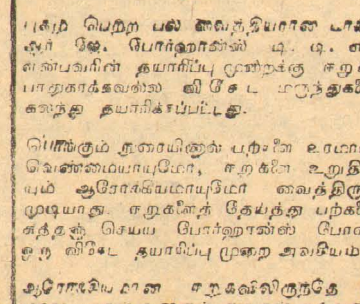 புகழ் பெற்ற பல் வைத்தியரான டாக
டர் ஜே. போர்ஹான்ஸ் டி. டி. எ
என்பவரின் தயாரிப்பு முறைக்கு ஈறு
பாதுகாக்கவல்ல விசேட மருந்துகள
கலந்து தயாரிக்கப்பட்டது.
பொங்கும் நுரையினால் பற்களை உரமா
வெண்மையாயுமோ, ஈறுகளை உறுதி
யும் ஆரோக்கியமாயுமோ வைத்திரு
முடியாது. ஈறுகளைத் தேய்த்து பற்களை
சுத்தஞ் செய்ய போர்ஹான்ஸ் போல
ஒரு விசேட தயாரிப்பு முறை அவசியம்
ஆரோக்கியமான ஈறுகளிலிருந்தே